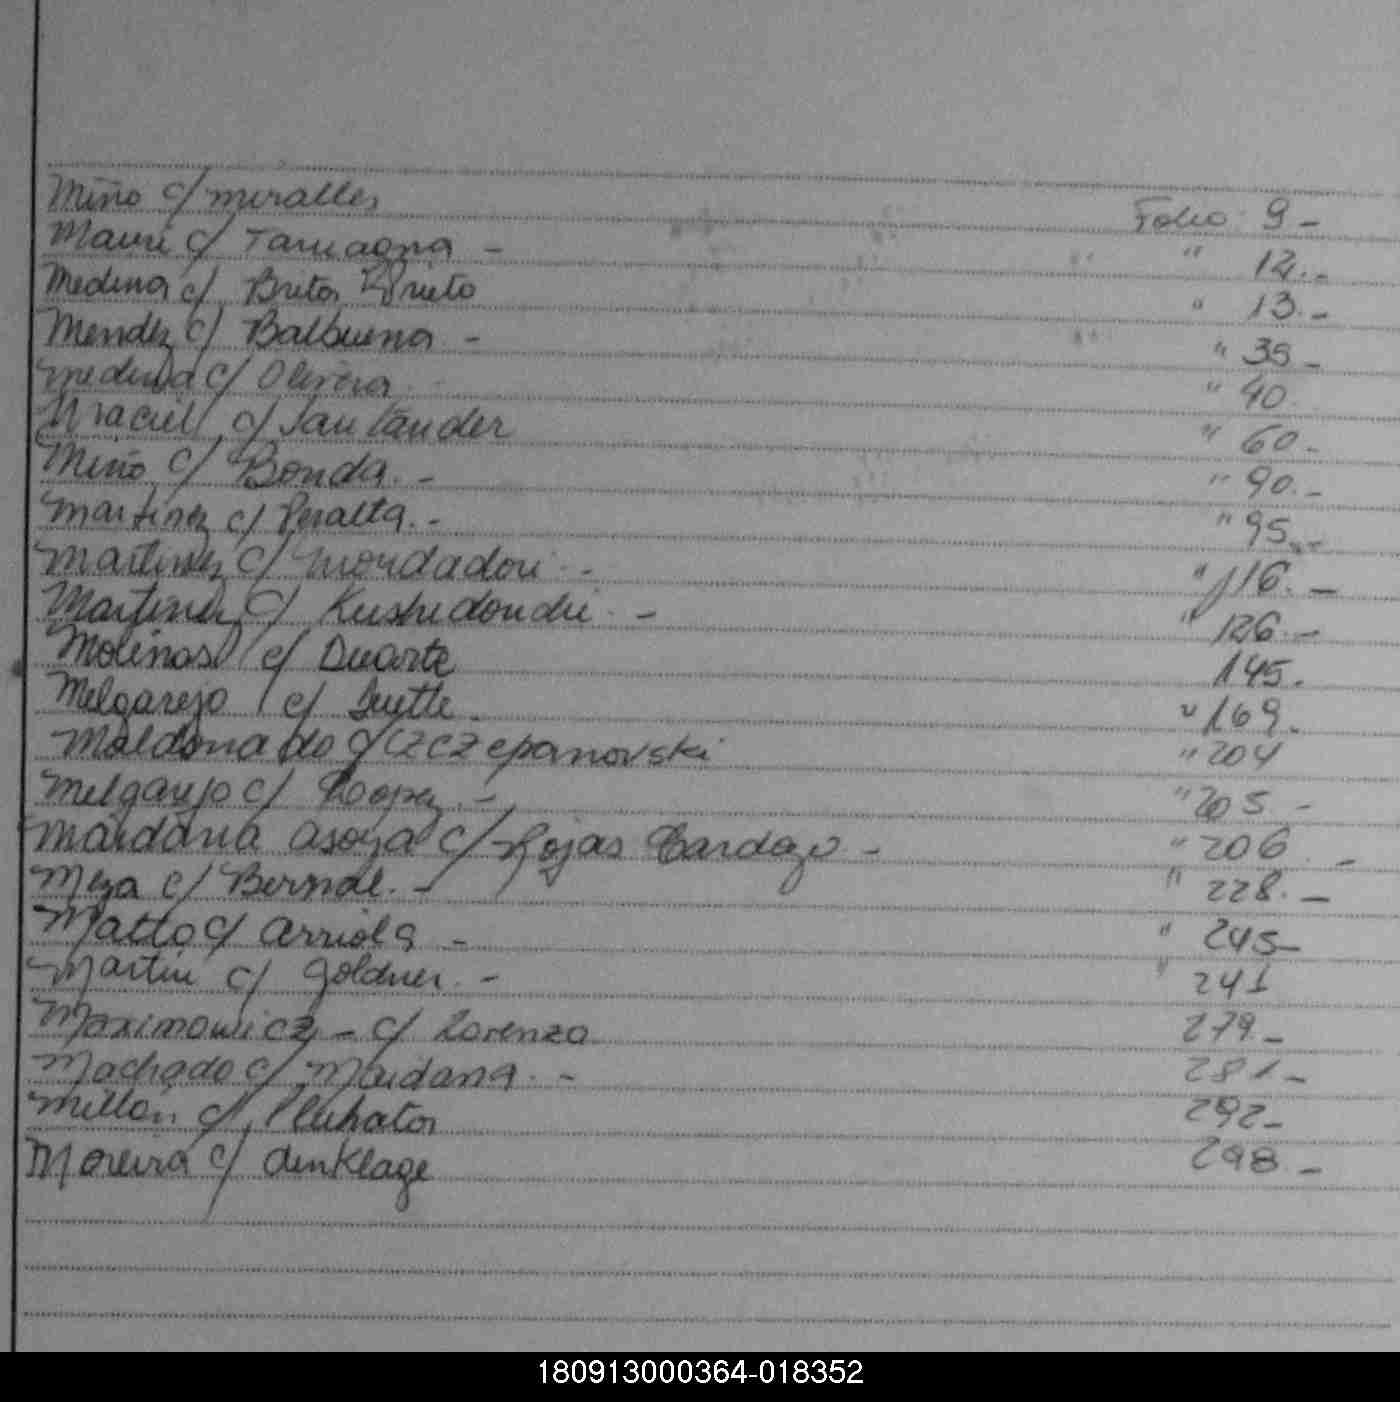 Miño c/ miralles Folio 9 -
Mauri c/ Tamagna - " 12. -
Medina c/ Britos Prieto " 13. -
Mendez c/ Balbuena - " 35 -
medina c/ Olivera " 40.
Maciel c/ Santander " 60 -
Miño c/ Bonda. - " 90. -
Martinez c/ Peralta. - " 95. -
Martinez c/ Mondadori. - " 116. -
Martinez c/ - " 126. -
Molinas c/ Duarte 145.
Melgarejo c/ " 169.
Maldonado c/ czczepanovski " 204
Melgarejo c/ - " 205. -
Maidana asoya c/ Rojas Cardozo - " 206. -
Meza c/ Bernal. - " 228. -
Matto c/ Arriola - " 245 -
Martin c/ Goldner. - " 241
Maximowicz - c/ Lorenzo 279. -
Machado c/ Maidana. - 281 -
Millan c/ 292 -
Moreira c/ dinklage 298. -
180913000364-018352